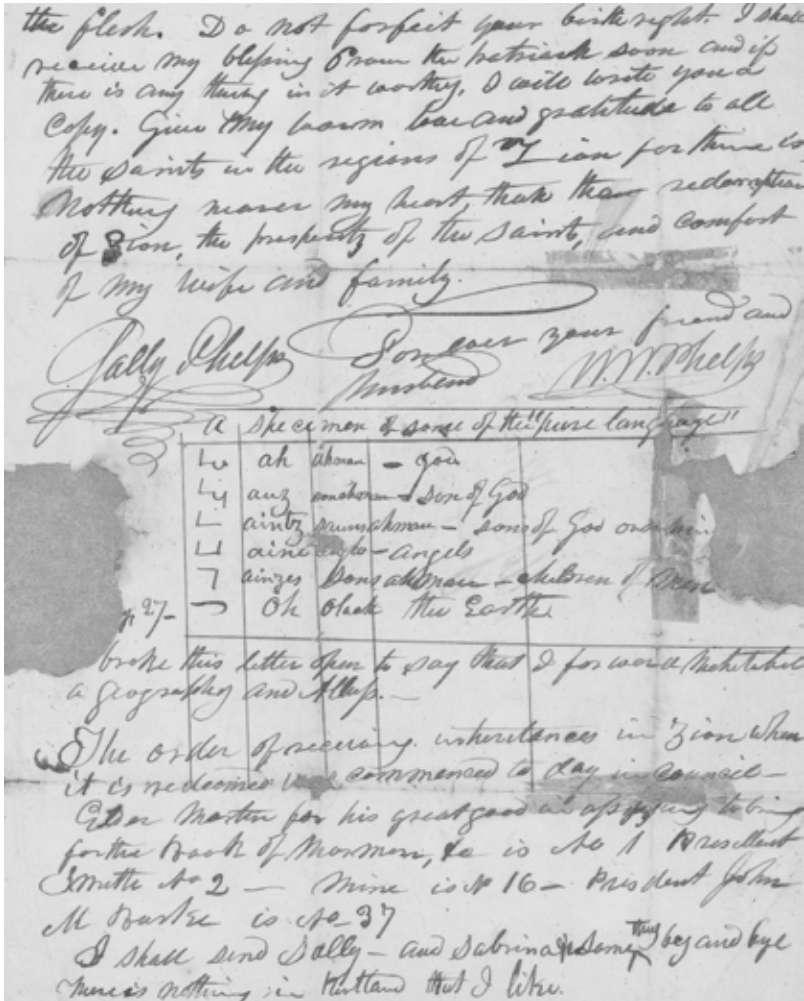 the flesh. Do not forfeit your birth right. I shall
receive my blessing from the patriark soon and if
there is any thing in it worthy, I will write you a
Copy. Give my warm love and gratitude to all
the saints in the regions of Zion for there is
Nothing nearer my heart, than the redemption
of Zion, the prosperity of the Saints, and comfort
of my wife and family.
Sally Phelps Forever your friend and
husband W. W. Phelps
A specimen of some of the "pure language"
ah ahman – god
auz sonahman – son of God
aintz saunsahman – sons of God or
aine anglo – angels
ainzes sons ahman – children of men
oh olach the Earth
27–
broke this letter open to say that I forward Mehitabel
a geography and Atlass.–
The order of receiving inheritances in Zion when
it is redeemed commenced to day in council–
Elder Martin for his great good in to bring
forth the Book of Mormon, is No 1 President
Smith No 2 – Mine is No 16 – President John
is No 37
I shall send Sally – and Sabrina something by and bye
there is nothing in Kirtland that I like.